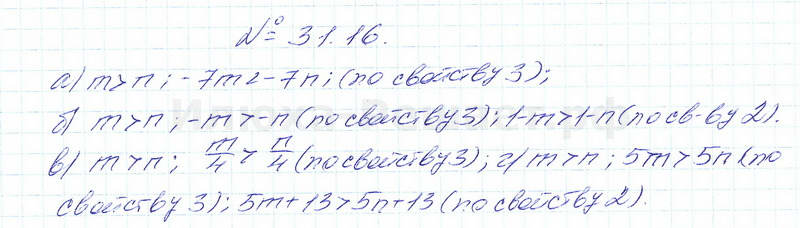 № 31.16.
а) m > n ; -7m < -7n ; (по свойству 3);
б) m > n ; -m > -n (по свойству 3); 1-m > 1-n (по св-ву 2).
в) m > n ; m/4 > n/4 (по свойству 3); г) m > n ; 5m > 5n (по
свойству 3); 5m + 13 > 5n + 13 (по свойству 2).